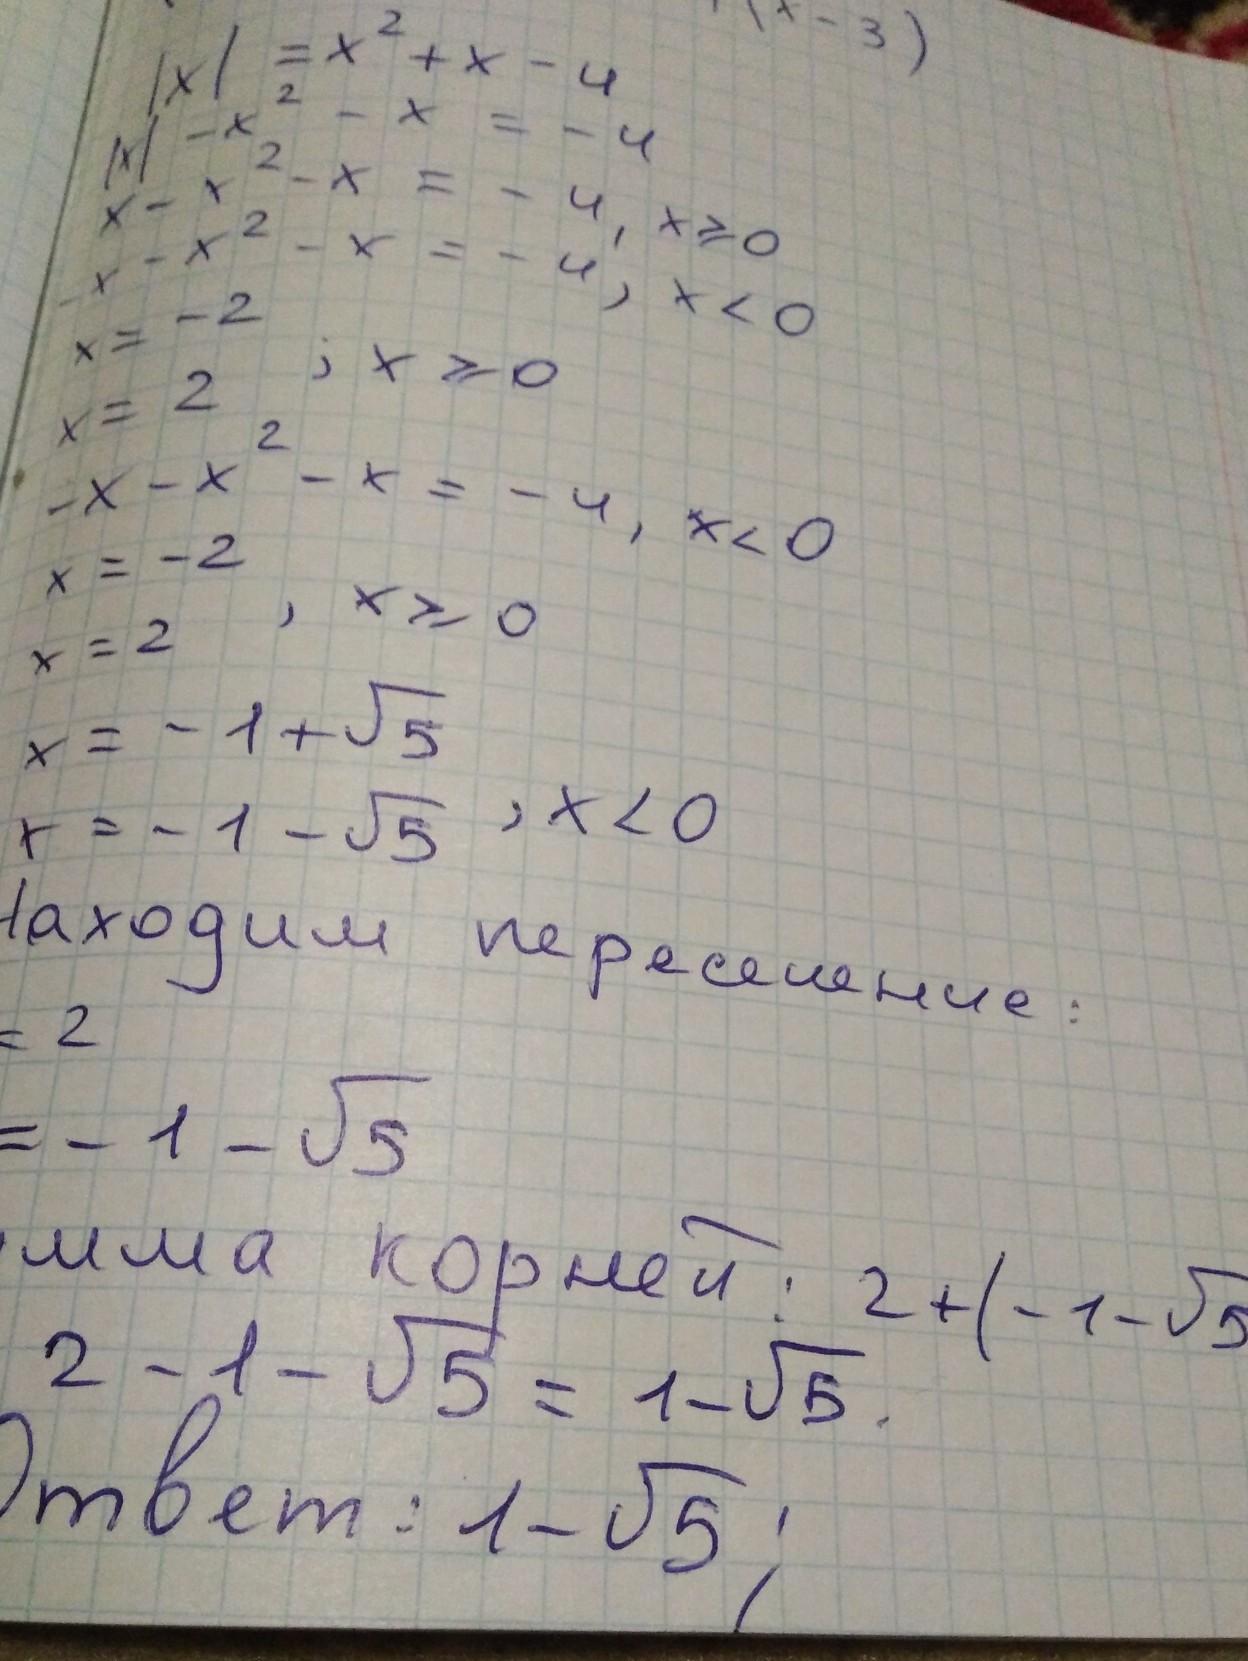 (x-3)
|x| = x² + x - 4
|x| - x² - x = -4
x - x² - x = -4, x ≥ 0
-x - x² - x = -4, x < 0
x = -2
x = 2 ; x ≥ 0
-x - x² - x = -4, x < 0
x = -2
x = 2 , x ≥ 0
x = -1 + √5
x = -1 - √5 , x < 0
Находим пересечение:
= 2
= -1 - √5
умма корней: 2 + (-1 - √5
2 - 1 - √5 = 1 - √5.
Ответ: 1 - √5;